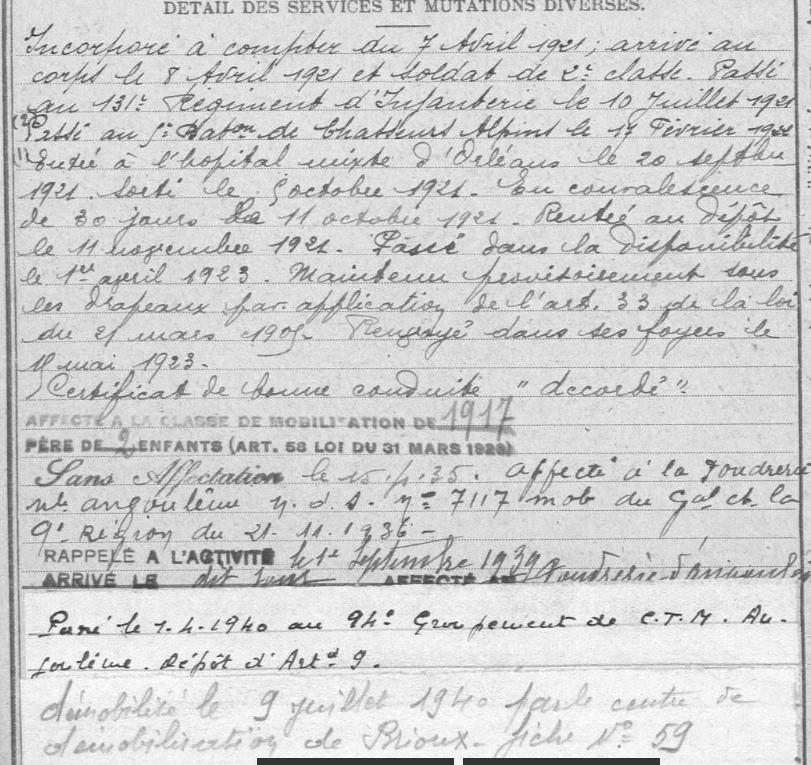 DÉTAIL DES SERVICES ET MUTATIONS DIVERSES.
Incorporé à compter du 7 Avril 1921, arrivé au
corps le 8 Avril 1921 et soldat de 2e classe. Passé
au 131e Régiment d'Infanterie le 10 Juillet 1921
(2) Passé au 5e Baton de Chasseurs Alpins le 17 Février 1922
(1) Entré à l'hopital mixte d'Orléans le 20 septbre
1921. Sorti le 5 octobre 1921. En convalescence
de 30 jours 11 octobre 1921. Rentré au dépôt
le 11 novembre 1921. Passé dans la disponibilité
le 1er avril 1923. Maintenu provisoirement sous
les drapeaux par application de l'art. 33 de la loi
du 21 mars 1905. Renvoyé dans ses foyers le
mai 1923.
Certificat de bonne conduite "accordé".
AFFECTÉ A LA CLASSE DE MOBILISATION DE 1917
PÈRE DE 2 ENFANTS (ART. 58 LOI DU 31 MARS 1928)
Sans Affectation le 15.4.35. Affecté à la Poudrerie
nle angoulême n. d. s. no 7117 mob du Gal ct la
9e Région du 21.11.1936 -
RAPPELÉ A L'ACTIVITÉ le 1e Septembre 1939
ARRIVÉ LE dit jour AFFECTÉ Poudrerie d'Angoulême
Passé le 1.4.1940 au 94e Groupement de C.T.M. An-
goulême. dépôt d'Artie 9.
démobilisé le 9 juillet 1940 par le centre de
démobilisation de Brioux - fiche No 59